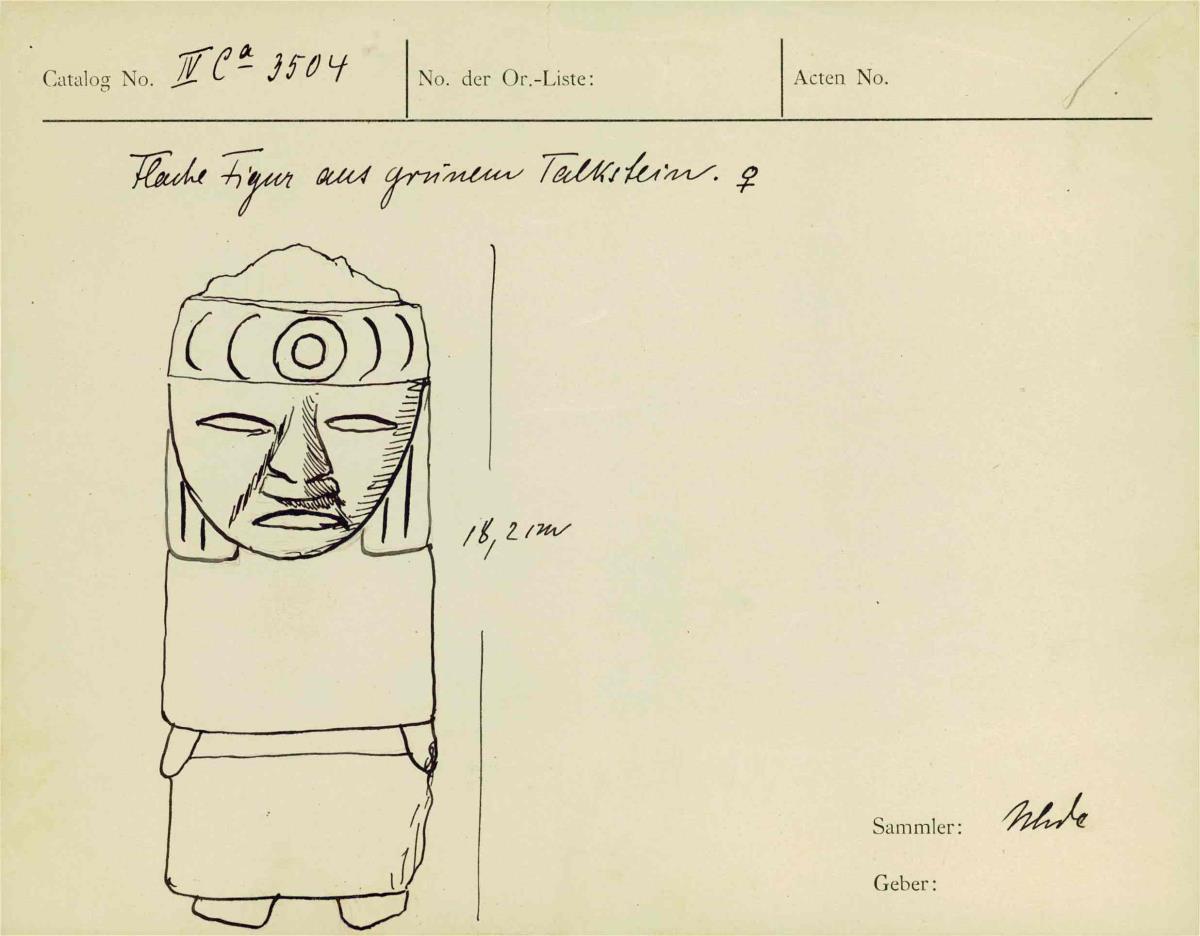 Catalog No. IV Cª 3504
No. der Or.-Liste:
Acten No.
Flache Figur aus grünem Talkstein. ♀
18,2 cm
Sammler: Uhde
Geber: